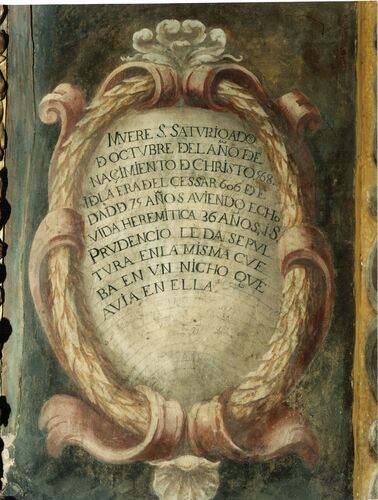 MVERE S. SATVRIO A DO
D OCTVBRE DEL AÑO DE
NACIMIENTO D CHRISTO 568.
I D LA ERA DEL CESSAR 606 D E
DAD D 75 AÑOS AVIENDO ECHO
VIDA HEREMITICA 36 AÑOS, I S.
PRVDENCIO LE DA SEPVL
TVRA EN LA MISMA CVE
BA EN VN NICHO QVE
AVIA EN ELLA